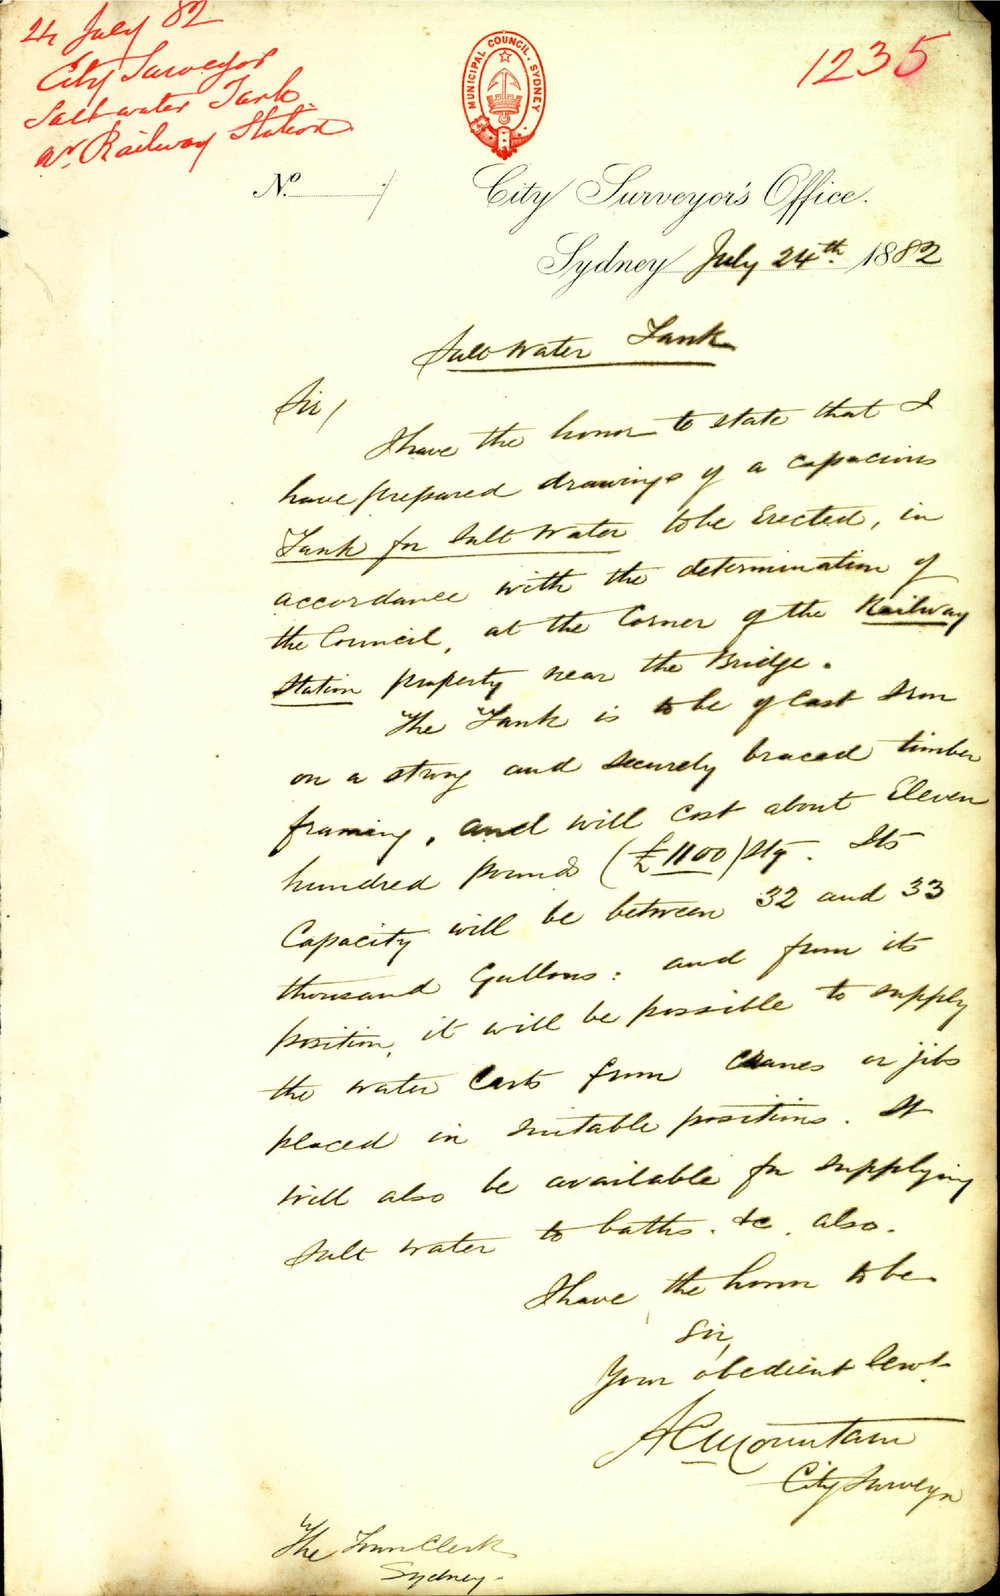 24 July 82
City Surveyor
Salt water Tank
nr. Railway Station
1235
MUNICIPAL COUNCIL. SYDNEY
No.
City Surveyor's Office.
Sydney July 24th. 1882
Salt Water Tank
Sir/
I have the honor to state that I
have prepared drawings of a capacious
Tank for Salt Water to be Erected, in
accordance with the determination of
the Council, at the Corner of the Railway
Station property near the Bridge.
The Tank is to be of Cast Iron
on a strong and securely braced timber
framing, and will cost about Eleven
hundred pounds (£1100) Stg. Its
Capacity will be between 32 and 33
thousand Gallons: and from its
position, it will be possible to supply
the water Carts from Cranes or jibs
placed in suitable positions. It
will also be available for supplying
salt water to baths. &c. also.
I have the honor to be
Sir,
Your obedient Servt.
A C Mountain
City Surveyor
The Town Clerk
Sydney.